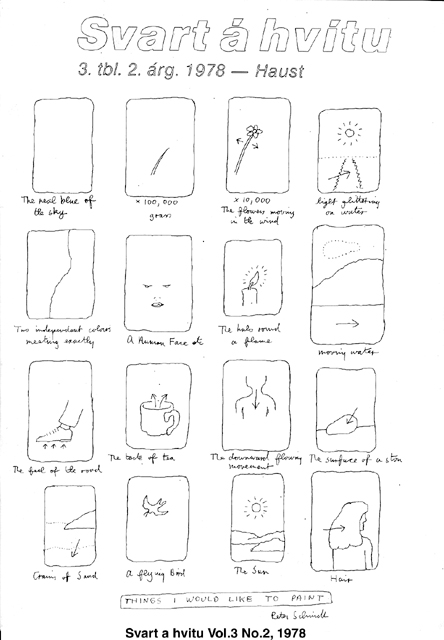 Svart á hvítu
3. tbl. 2. árg. 1978 — Haust
The real blue of
the sky
× 100,000
grass
× 10,000
The flowers moving
in the wind
light glittering
on water
Two independent colours
meeting exactly
A Human Face etc
The halo round
a flame
moving water
The feel of the road
The taste of tea
The downward flowing
movement
The surface of a stone
Grains of Sand
A flying Bird
The Sun
Hair
THINGS I WOULD LIKE TO PAINT
Peter Schmidt
Svart a hvitu Vol.3 No.2, 1978